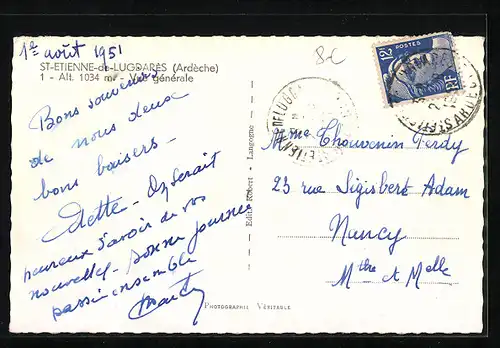 1er août 1951
ST-ETIENNE-de-LUGDARÈS (Ardèche)
1 - Alt. 1034 m. - Vue générale
8c
Bons souvenirs
de nous deux
bons baisers -
Odette - On serait
heureux d'avoir de vos
nouvelles - bonne journée
passée ensemble
Editio Robert - Langogne
POSTES
12
RF
Mme Thouvenin Ferdy
23 rue Sigisbert Adam
Nancy
Mthe et Mlle
PHOTOGRAPHIE VÉRITABLE